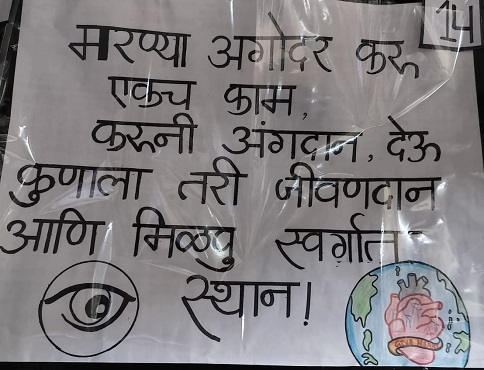 14
मरण्या अगोदर करू
एकच काम,
करूनी अंगदान, देऊ
कुणाला तरी जीवणदान
आणि मिळवु स्वर्गात
स्थान!